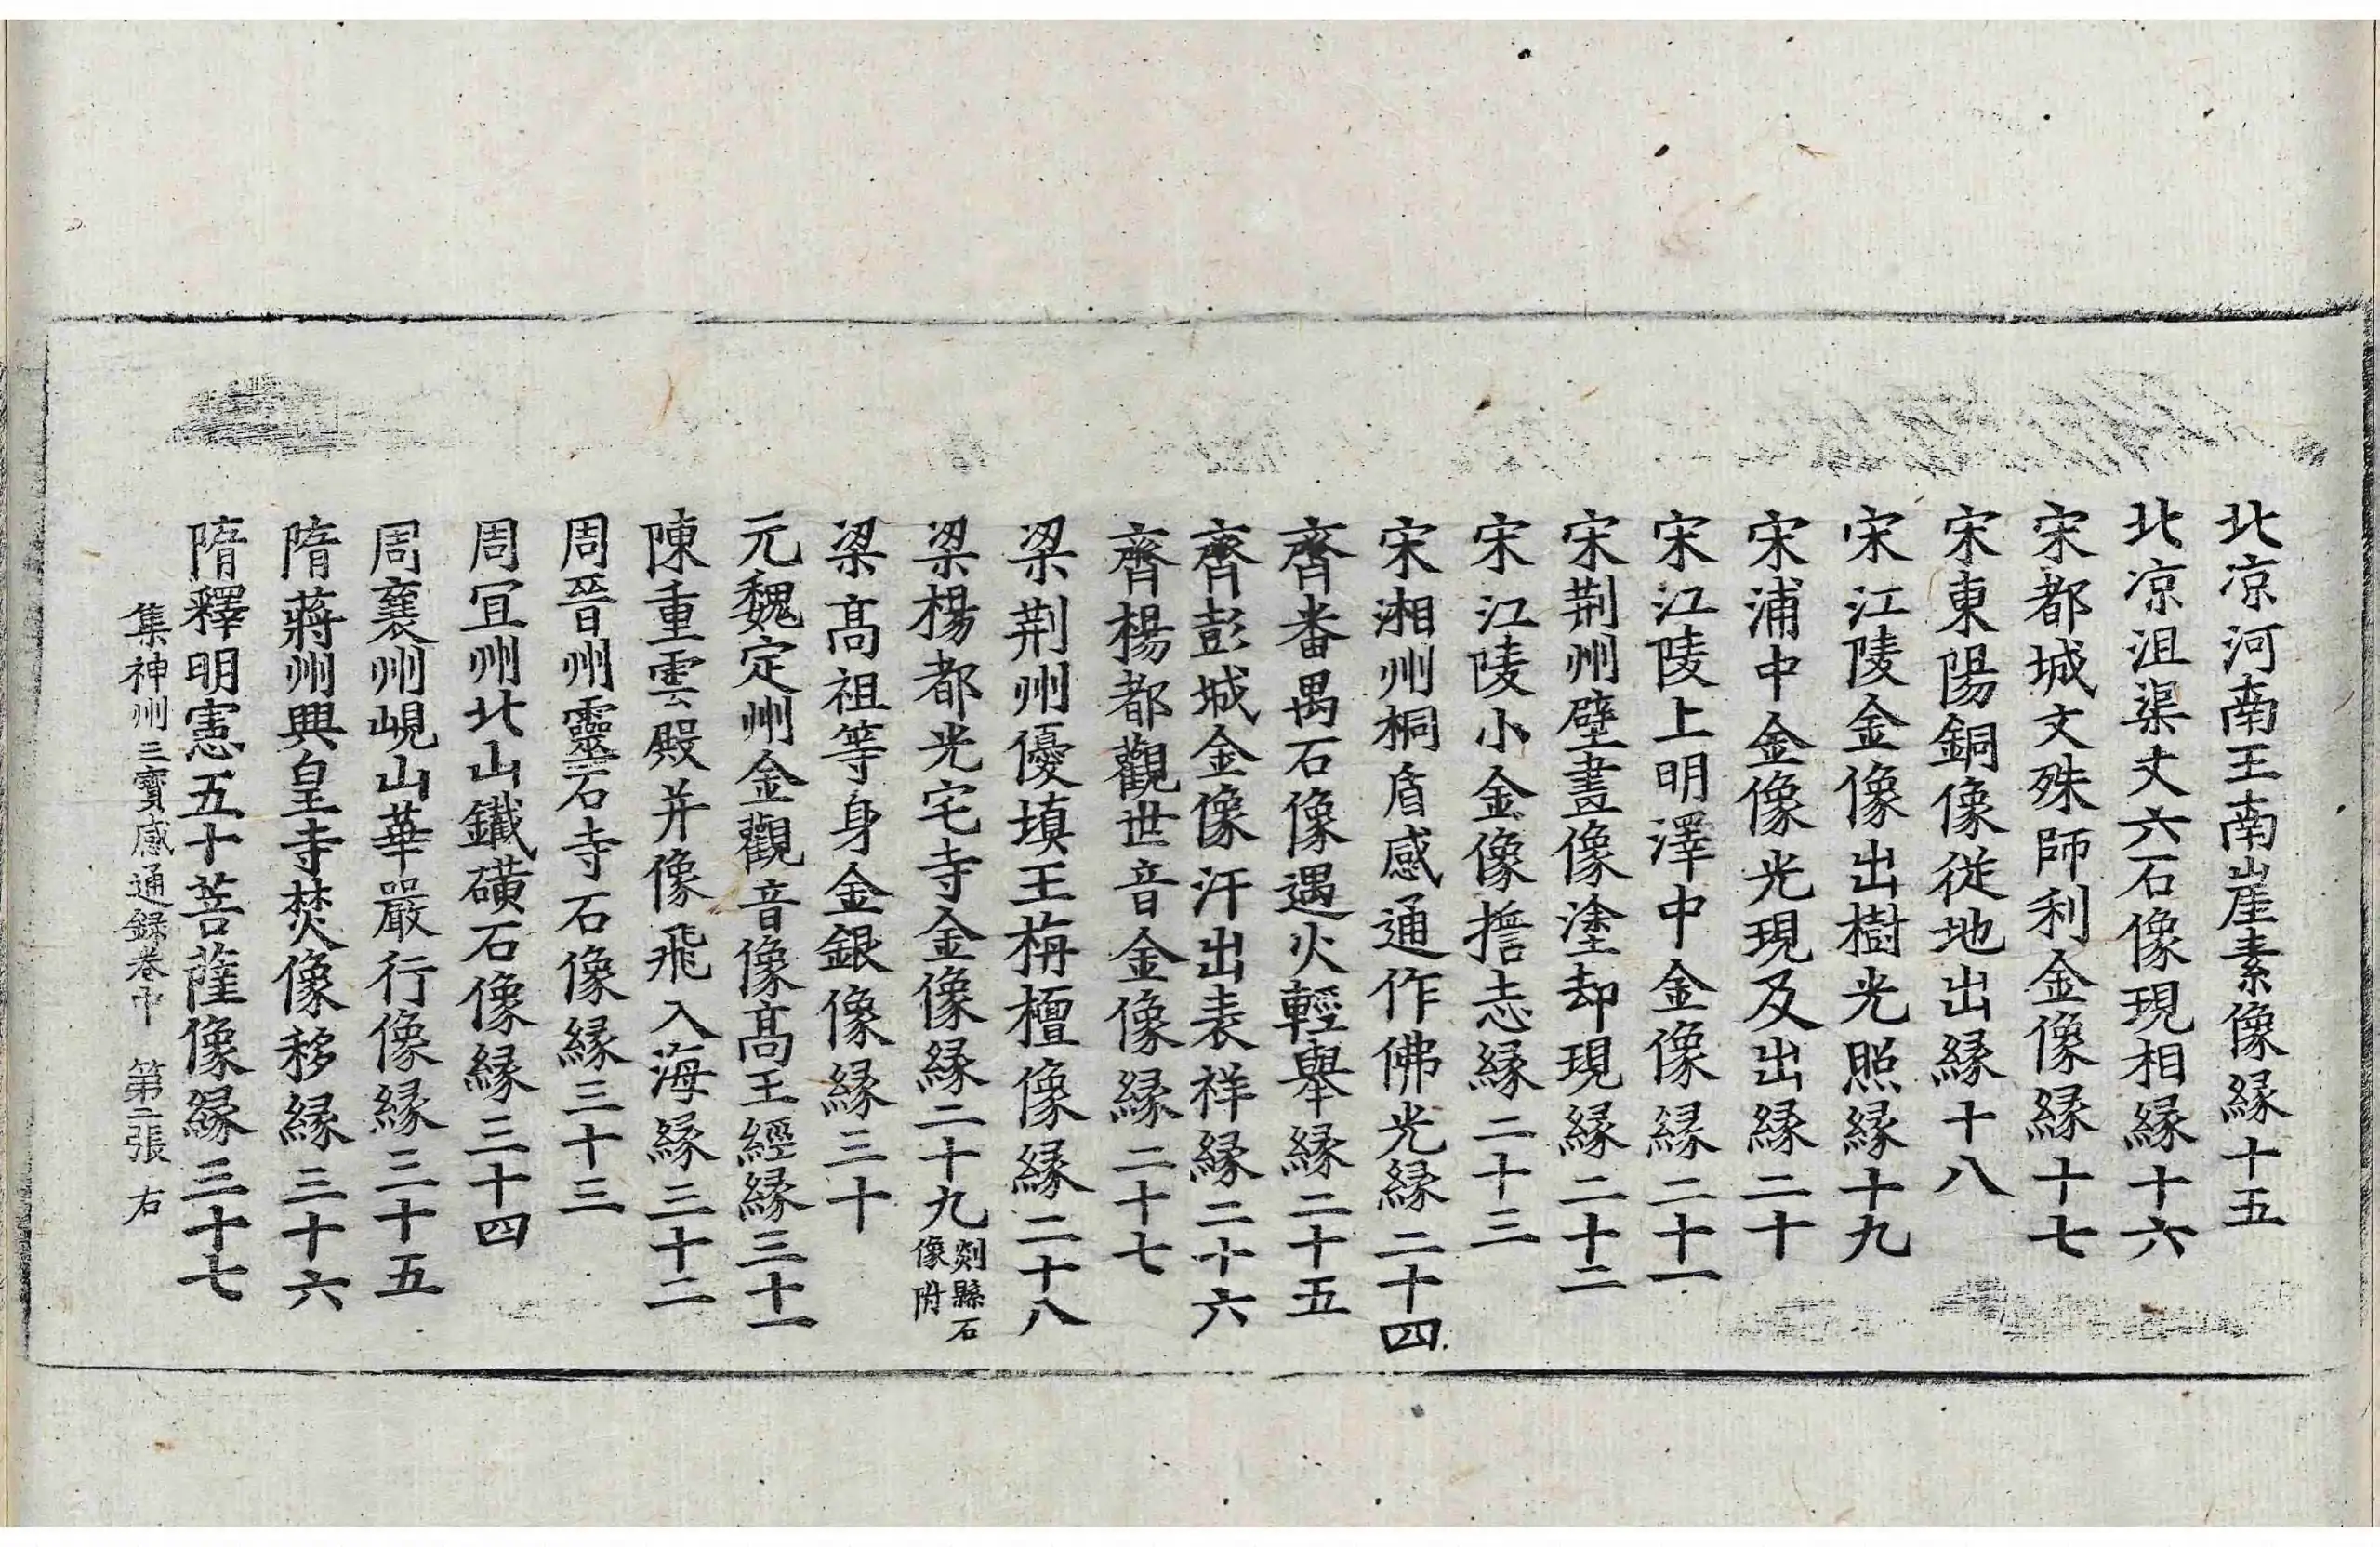 北涼河南王南崖素像緣十五
北涼沮渠丈六石像現相緣十六
宋都城文殊師利金像緣十七
宋東陽銅像從地出緣十八
宋江陵金像出樹光照緣十九
宋浦中金像光現及出緣二十
宋江陵上明澤中金像緣二十一
宋荆州壁畫像塗却現緣二十二
宋江陵小金像擔志緣二十三
宋湘州桐盾感通作佛光緣二十四
齊番禺石像遇火輕舉緣二十五
齊彭城金像汗出表祥緣二十六
齊楊都觀世音金像緣二十七
梁荆州優填王栴檀像緣二十八
梁楊都光宅寺金像緣二十九剡縣石像附
梁高祖等身金銀像緣三十
元魏定州金觀音像高王經緣三十一
陳重雲殿并像飛入海緣三十二
周晉州靈石寺石像緣三十三
周宜州北山鐵礦石像緣三十四
周襄州峴山華嚴行像緣三十五
隋蔣州興皇寺焚像移緣三十六
隋釋明憲五十菩薩像緣三十七
集神州三寶感通録卷中 第二張 右